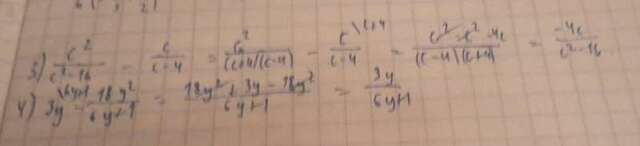 3) c²/(c²-16) - c/(c-4) = c²/((c+4)(c-4)) - c\c+4/(c-4) = (c² - c² - 4c)/((c-4)(c+4)) = -4c/(c²-16)
4) 3y\6y+1 - 18y²/(6y+1) = (18y² + 3y - 18y²)/(6y+1) = 3y/(6y+1)